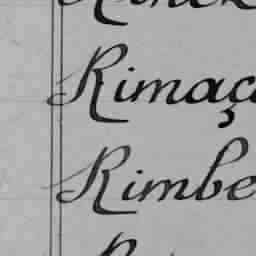 Rimaç
Rimbe